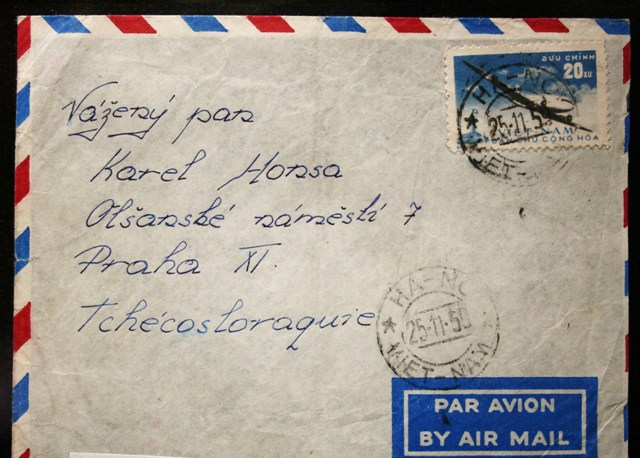 BƯU CHÍNH
20 XU
VIỆT-NAM
DÂN CHỦ CỘNG HÒA
HA-NO
25-11-59
VIET-
Vážený pan
Karel Honsa
Olšanské náměstí 7
Praha XI.
Tchécosloraquie
HA-NO
25-11-59
VIET-NAM
PAR AVION
BY AIR MAIL